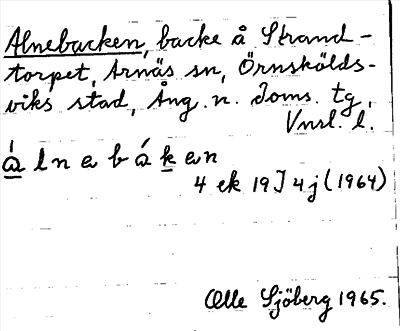 Alnebacken, backe å Strand-
torpet, Arnäs sn, Örnskölds-
viks stad, Ång. n. Doms. tg,
Vnrl. l.
álnebáken
4 ek 19J 4j (1964)
Olle Sjöberg 1965.